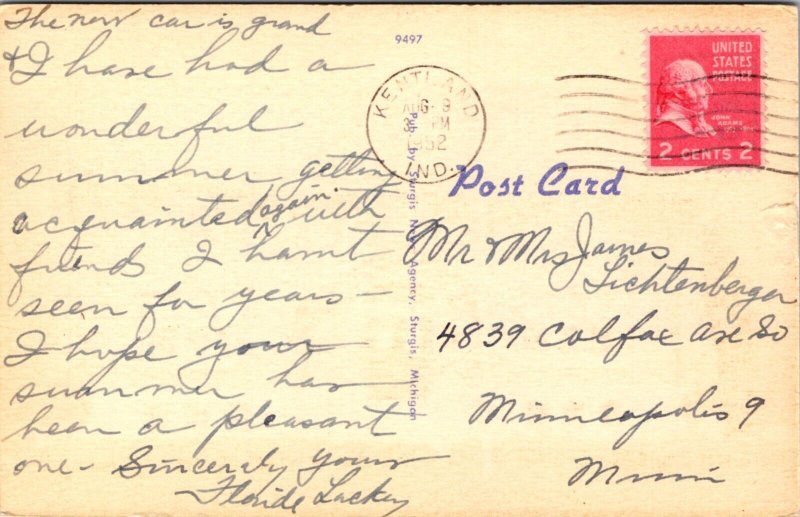 The new car is grand
& I have had a
wonderful
summer getting
acquainted again with
friends I havnt
seen for years –
I hope your
summer has
been a pleasant
one – Sincerely yours
Floride Lackey
9497
Pub. by Sturgis News Agency, Sturgis, Michigan
KENTLAND
AUG 9
3 PM
1952
IND.
UNITED
STATES
POSTAGE
JOHN
ADAMS
2 CENTS 2
Post Card
Mr & Mrs James
Lichtenberger
4839 Colfax Ave So
Minneapolis 9
Minn